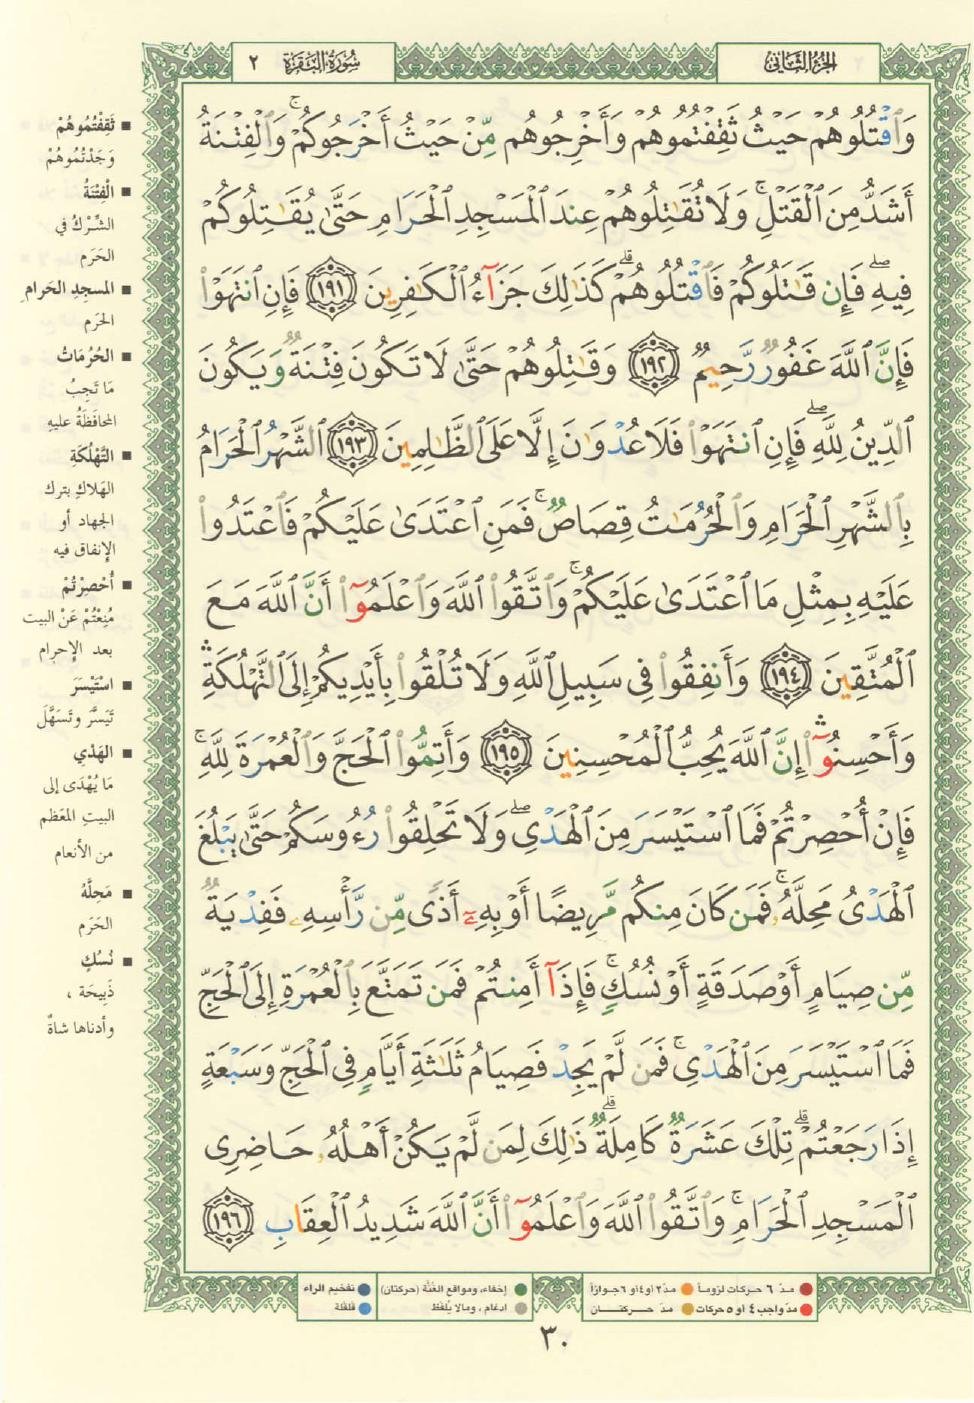 الجزء الثاني
سورة البقرة ٢
وَٱقۡتُلُوهُمۡ حَيۡثُ ثَقِفۡتُمُوهُمۡ وَأَخۡرِجُوهُم مِّنۡ حَيۡثُ أَخۡرَجُوكُمۡۚ وَٱلۡفِتۡنَةُ
أَشَدُّ مِنَ ٱلۡقَتۡلِۚ وَلَا تُقَٰتِلُوهُمۡ عِندَ ٱلۡمَسۡجِدِ ٱلۡحَرَامِ حَتَّىٰ يُقَٰتِلُوكُمۡ
فِيهِۖ فَإِن قَٰتَلُوكُمۡ فَٱقۡتُلُوهُمۡۗ كَذَٰلِكَ جَزَآءُ ٱلۡكَٰفِرِينَ ١٩١ فَإِنِ ٱنتَهَوۡاْ
فَإِنَّ ٱللَّهَ غَفُورٞ رَّحِيمٞ ١٩٢ وَقَٰتِلُوهُمۡ حَتَّىٰ لَا تَكُونَ فِتۡنَةٞ وَيَكُونَ
ٱلدِّينُ لِلَّهِۖ فَإِنِ ٱنتَهَوۡاْ فَلَا عُدۡوَٰنَ إِلَّا عَلَى ٱلظَّٰلِمِينَ ١٩٣ ٱلشَّهۡرُ ٱلۡحَرَامُ
بِٱلشَّهۡرِ ٱلۡحَرَامِ وَٱلۡحُرُمَٰتُ قِصَاصٞۚ فَمَنِ ٱعۡتَدَىٰ عَلَيۡكُمۡ فَٱعۡتَدُواْ
عَلَيۡهِ بِمِثۡلِ مَا ٱعۡتَدَىٰ عَلَيۡكُمۡۚ وَٱتَّقُواْ ٱللَّهَ وَٱعۡلَمُوٓاْ أَنَّ ٱللَّهَ مَعَ
ٱلۡمُتَّقِينَ ١٩٤ وَأَنفِقُواْ فِي سَبِيلِ ٱللَّهِ وَلَا تُلۡقُواْ بِأَيۡدِيكُمۡ إِلَى ٱلتَّهۡلُكَةِۛ
وَأَحۡسِنُوٓاْۛ إِنَّ ٱللَّهَ يُحِبُّ ٱلۡمُحۡسِنِينَ ١٩٥ وَأَتِمُّواْ ٱلۡحَجَّ وَٱلۡعُمۡرَةَ لِلَّهِۚ
فَإِنۡ أُحۡصِرۡتُمۡ فَمَا ٱسۡتَيۡسَرَ مِنَ ٱلۡهَدۡيِۖ وَلَا تَحۡلِقُواْ رُءُوسَكُمۡ حَتَّىٰ يَبۡلُغَ
ٱلۡهَدۡيُ مَحِلَّهُۥۚ فَمَن كَانَ مِنكُم مَّرِيضًا أَوۡ بِهِۦٓ أَذٗى مِّن رَّأۡسِهِۦ فَفِدۡيَةٞ
مِّن صِيَامٍ أَوۡ صَدَقَةٍ أَوۡ نُسُكٖۚ فَإِذَآ أَمِنتُمۡ فَمَن تَمَتَّعَ بِٱلۡعُمۡرَةِ إِلَى ٱلۡحَجِّ
فَمَا ٱسۡتَيۡسَرَ مِنَ ٱلۡهَدۡيِۚ فَمَن لَّمۡ يَجِدۡ فَصِيَامُ ثَلَٰثَةِ أَيَّامٖ فِي ٱلۡحَجِّ وَسَبۡعَةٍ
إِذَا رَجَعۡتُمۡۗ تِلۡكَ عَشَرَةٞ كَامِلَةٞۗ ذَٰلِكَ لِمَن لَّمۡ يَكُنۡ أَهۡلُهُۥ حَاضِرِي
ٱلۡمَسۡجِدِ ٱلۡحَرَامِۚ وَٱتَّقُواْ ٱللَّهَ وَٱعۡلَمُوٓاْ أَنَّ ٱللَّهَ شَدِيدُ ٱلۡعِقَابِ ١٩٦
■ ثَقِفْتُمُوهُمْ
وَجَدْتُمُوهُمْ
■ الْفِتْنَةُ
الشِّرْكُ في
الحَرَم
■ المسجد الحَرام
الحَرَم
■ الحُرُمَاتُ
مَا تَجِبُ
المحافَظَةُ عليهِ
■ التَّهْلُكَةِ
الهَلاكِ بترك
الجهاد أو
الإنفاق فيه
■ أُحْصِرْتُمْ
مُنِعْتُمْ عَنْ البيت
بعد الإحرام
■ اسْتَيْسَرَ
تَيَسَّرَ وتَسَهَّلَ
■ الهَدْي
مَا يُهْدَى إلى
البيتِ المعَظم
من الأنعام
■ مَحِلَّهُ
الحَرَم
■ نُسُكٍ
ذَبِيحَة ،
وأدناها شاةٌ
مدّ ٦ حركات لزوماً مدّ ٢ او ٤ او ٦ جوازاً
مدّ واجب ٤ او ٥ حركات مدّ حركتان
إخفاء، ومواقع الغُنَّة (حركتان) تفخيم الراء
ادغام ، ومالا يُلفَظ قلقلة
٣٠